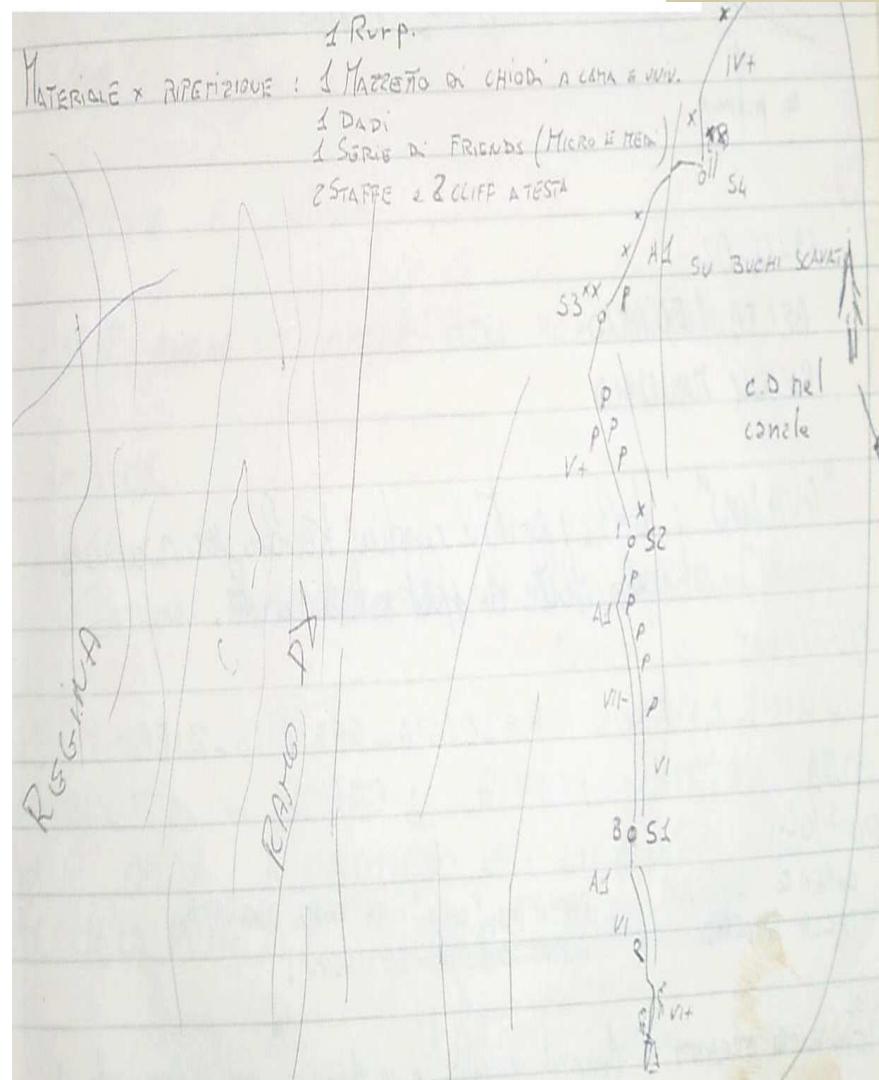 1 Rurp.
MATERIALE x RIPETIZIONE : 1 MAZZETTO DI CHIODI A LAMA E UNIV.
1 DADI
1 SERIE DI FRIENDS (MICRO E MEDI)
2 STAFFE e 2 CLIFF A TESTA
x
IV+
x
S4
x
x A1 SU BUCHI SCAVATI
S3 xx P
P
P P
V+ P
C.D nel
canale
x
S2
P
A1 P
P
P
VII- P
VI
REGINA
RAMO DX
B S1
A1
VI
VI+